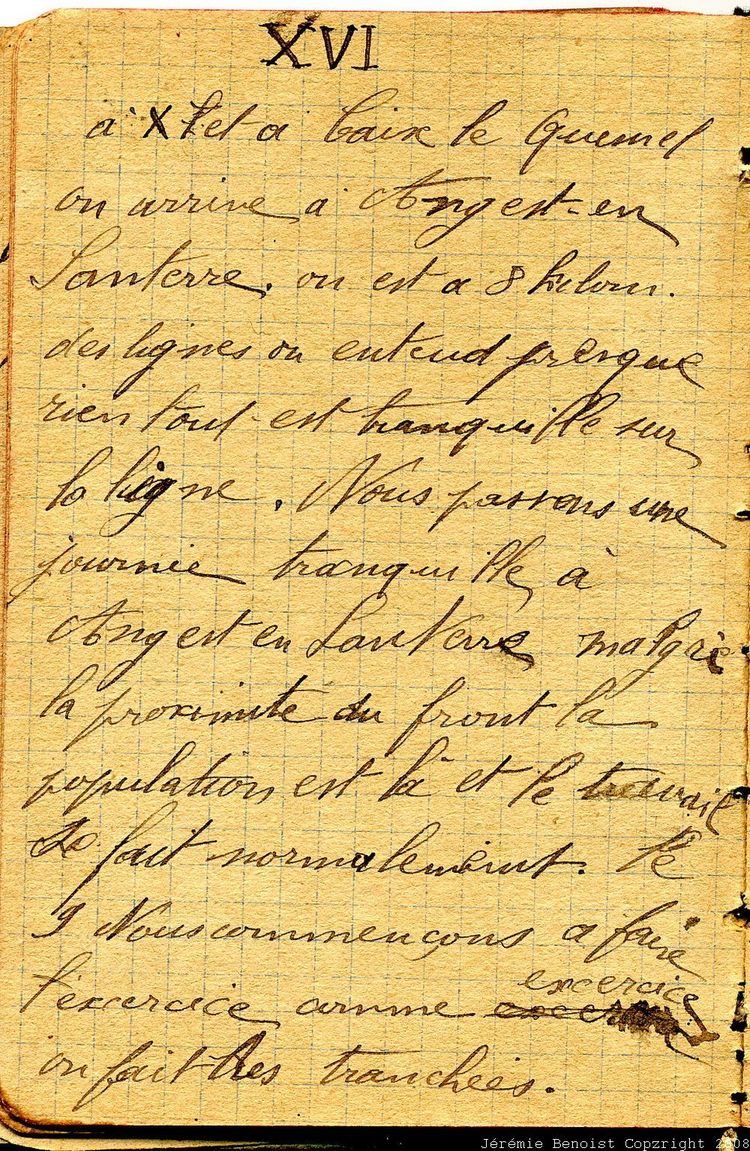 XVI
à X et a Caix le Quesnel
on arrive a Angest-en
Santerre. on est a 8 kilom.
des lignes on entend presque
rien tout est tranquille sur
la ligne. Nous passons une
journée tranquille à
Angest en Santerre malgré
la proximité du front la
population est là et le travail
se fait normalement. le
9 Nous commençons a faire
l'exercice comme excercice
on fait des tranchées.
Jérémie Benoist Copzright 2008